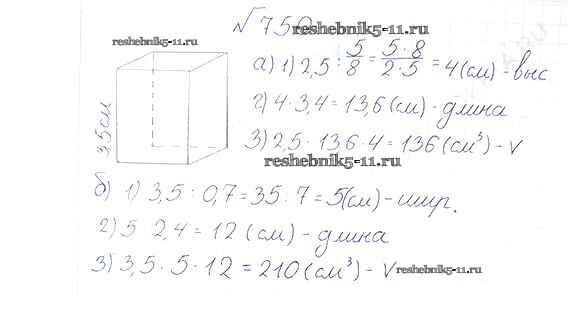 № 759
reshebnik5-11.ru
а) 1) 2,5 : 5/8 = 5·8/2·5 = 4 (см) - выс
2) 4·3,4 = 13,6 (см) - длина
3,5 см
3) 2,5 · 13,6 · 4 = 136 (см³) - V
reshebnik5-11.ru
б) 1) 3,5 : 0,7 = 35 : 7 = 5(см) - шир.
2) 5 · 2,4 = 12 (см) - длина
3) 3,5 · 5 · 12 = 210 (см³) - V
reshebnik5-11.ru